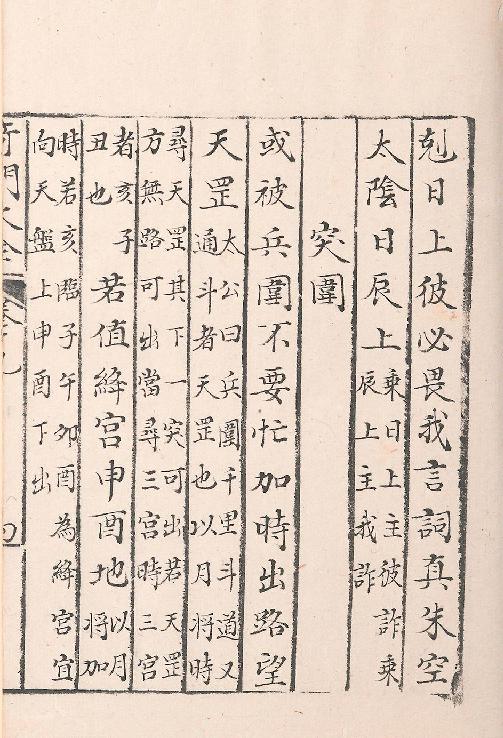 剋日上彼必畏我言詞真朱空
太陰日辰上乘日上主彼詐乘
辰上主我詐
突圍
或被兵圍不要忙加時出路望
天罡太公曰兵圍千里斗道又
通斗者天罡也以月將時
尋天罡其下一突可出若天罡
方無路可出當尋三宮時三宮
者亥子
丑也若值絳宮申酉地以月
將加
時若亥臨子午卯酉為絳宮宜
向天盤上申酉下出